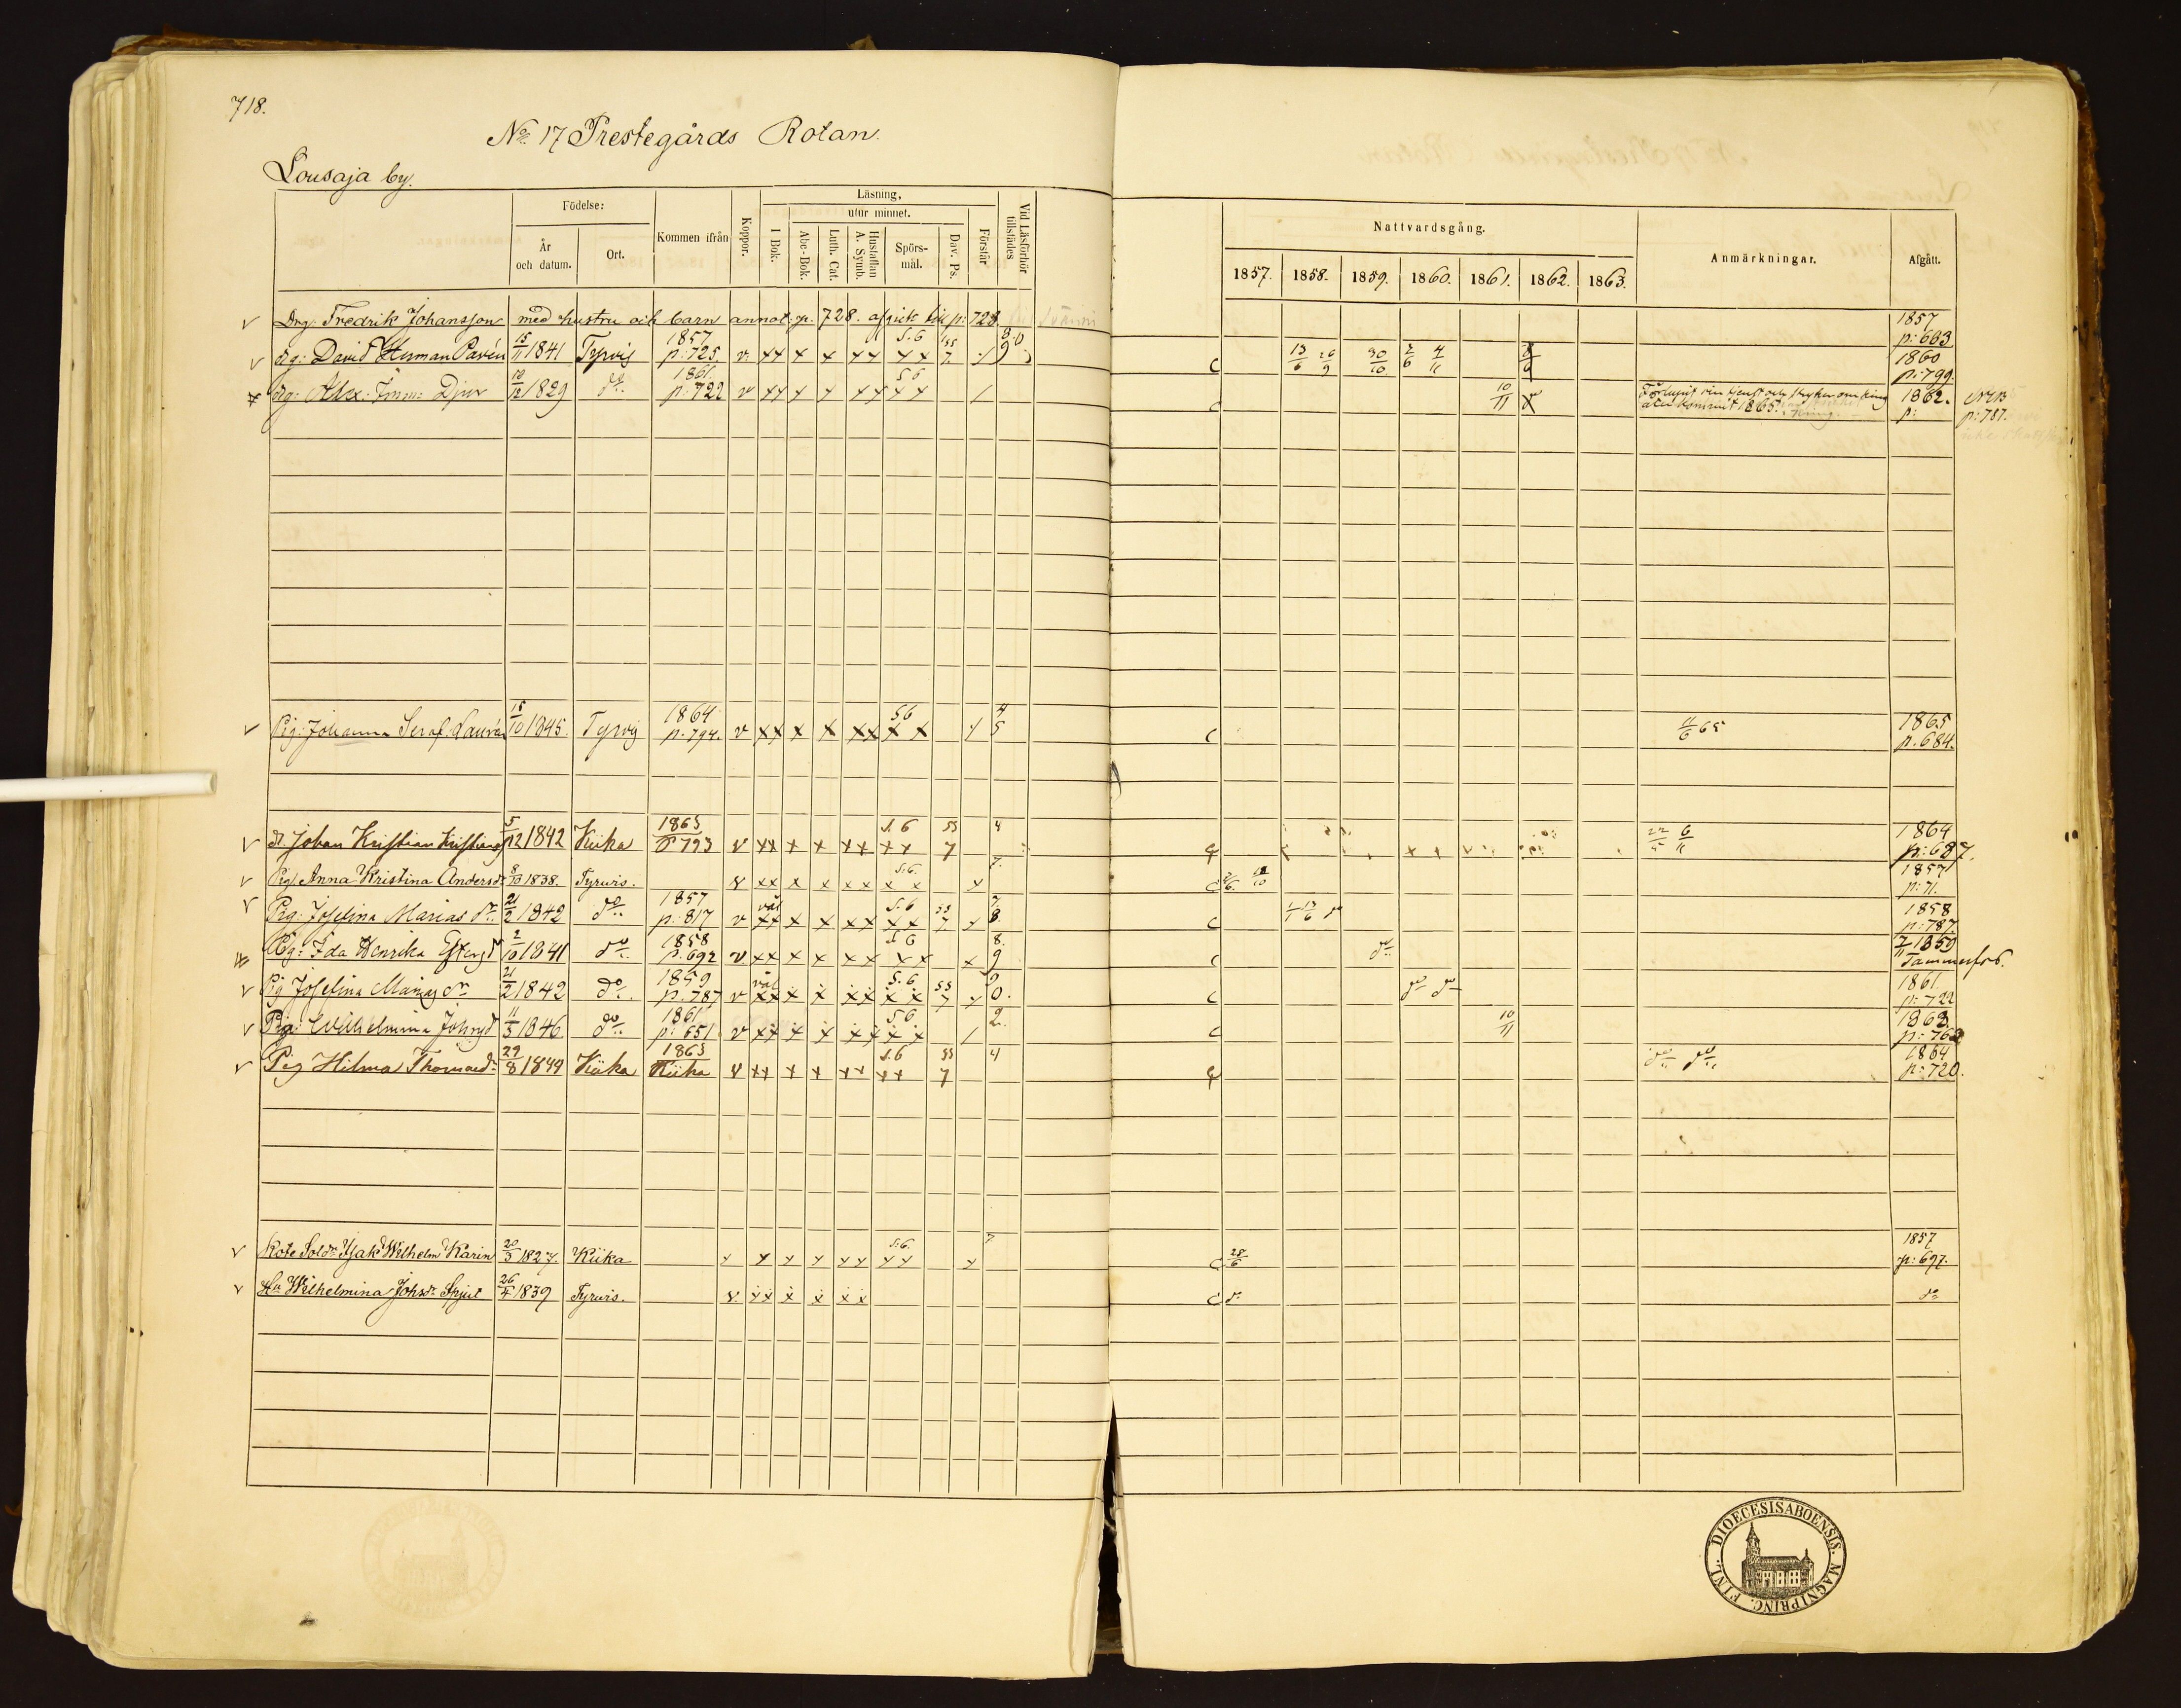 718.
No 17 Prestegårds Rotan.
Lousaja by.
Födelse: År och datum. Ort. Kommen ifrån Koppor. Läsning, I Bok. utur minnet. Abc-Bok. Luth. Cat. Hustaflan A. Symb. Spörs-mål. Dav. Ps. Förstår Vid Läsförhör tillstädes Nattvardsgång. 1857. 1858. 1859. 1860. 1861. 1862. 1863. Anmärkningar. Afgått.
Drg. Fredrik Johansson med hustru och barn annot: p. 728. afgick till p: 728. 1857 p: 663
drg: David Herman Pavén 15/11 1841 Tyrvis 1857 p: 725. v. xx x x xx S.6 xx 7. 8.0 9 C 13/6 26/9 30/10 2/6 4/11 1860 p: 799.
drg: Alex: Imm: Djur 10/12 1829 do 1861. p: 722 v xx x x xx 56 xx C 10/11 åter kommit 1865. 1862. p: p: 787.
Pig: Johanna Seraf. Laurén 15/10 1845. Tyrvis 1864 p. 794. v xx x x xx 56 xx 4 5 C 11/6 65 1865 p. 684.
dr. Johan Kristian Kristians 5/12 1842 Kiika 1863 p 793 v xx x x xx S.6 xx 55 7 4 6/11 1864 p: 687.
Pig. Anna Kristina Andersdr 8/10 1838. Tyrvis. v xx x x xx S:6. xx x 7. C 1857 p: 71.
Pig: Josefina Marias dr. 21/2 1842 do 1857 p: 817 v väl xx x x xx S.6 xx 55 7 x 7. 8. C 1858 p: 787.
Pig: Ida Henrika 2/10 1841 do 1858 p. 692 v. xx x x xx S6 xx x 8. 9 C do 7/11 1859 Tammerfors.
Pig Josefina Marias dr 21/2 1842 do 1859 p. 787 v väl xx x x xx S.6 xx 55 7 x 9 0. C do do 1861. p: 722
Pig: Wilhelmina Johsd 11/3 1846 do 1861 p: 651 v xx x x xx 56 xx 2. C 10/11 1863 p: 762
Pig Hilma Thomasdr 29/8 1849 Kiika 1863 Kiika v xx x x xx S.6 xx 55 7 4 do do 1864 p: 720.
Rote Soldn Isak Wilhelm Karin 20/3 1827. Kiika x x x x xx S:6. xx x 7. C 28/6 1857 p: 697.
Hu Wilhelmina Johsdr Skjul 26/4 1839 Tyrvis. v. xx x x xx C do do
DIOECESISABOENSIS. MAGNIPRINC. FINL.